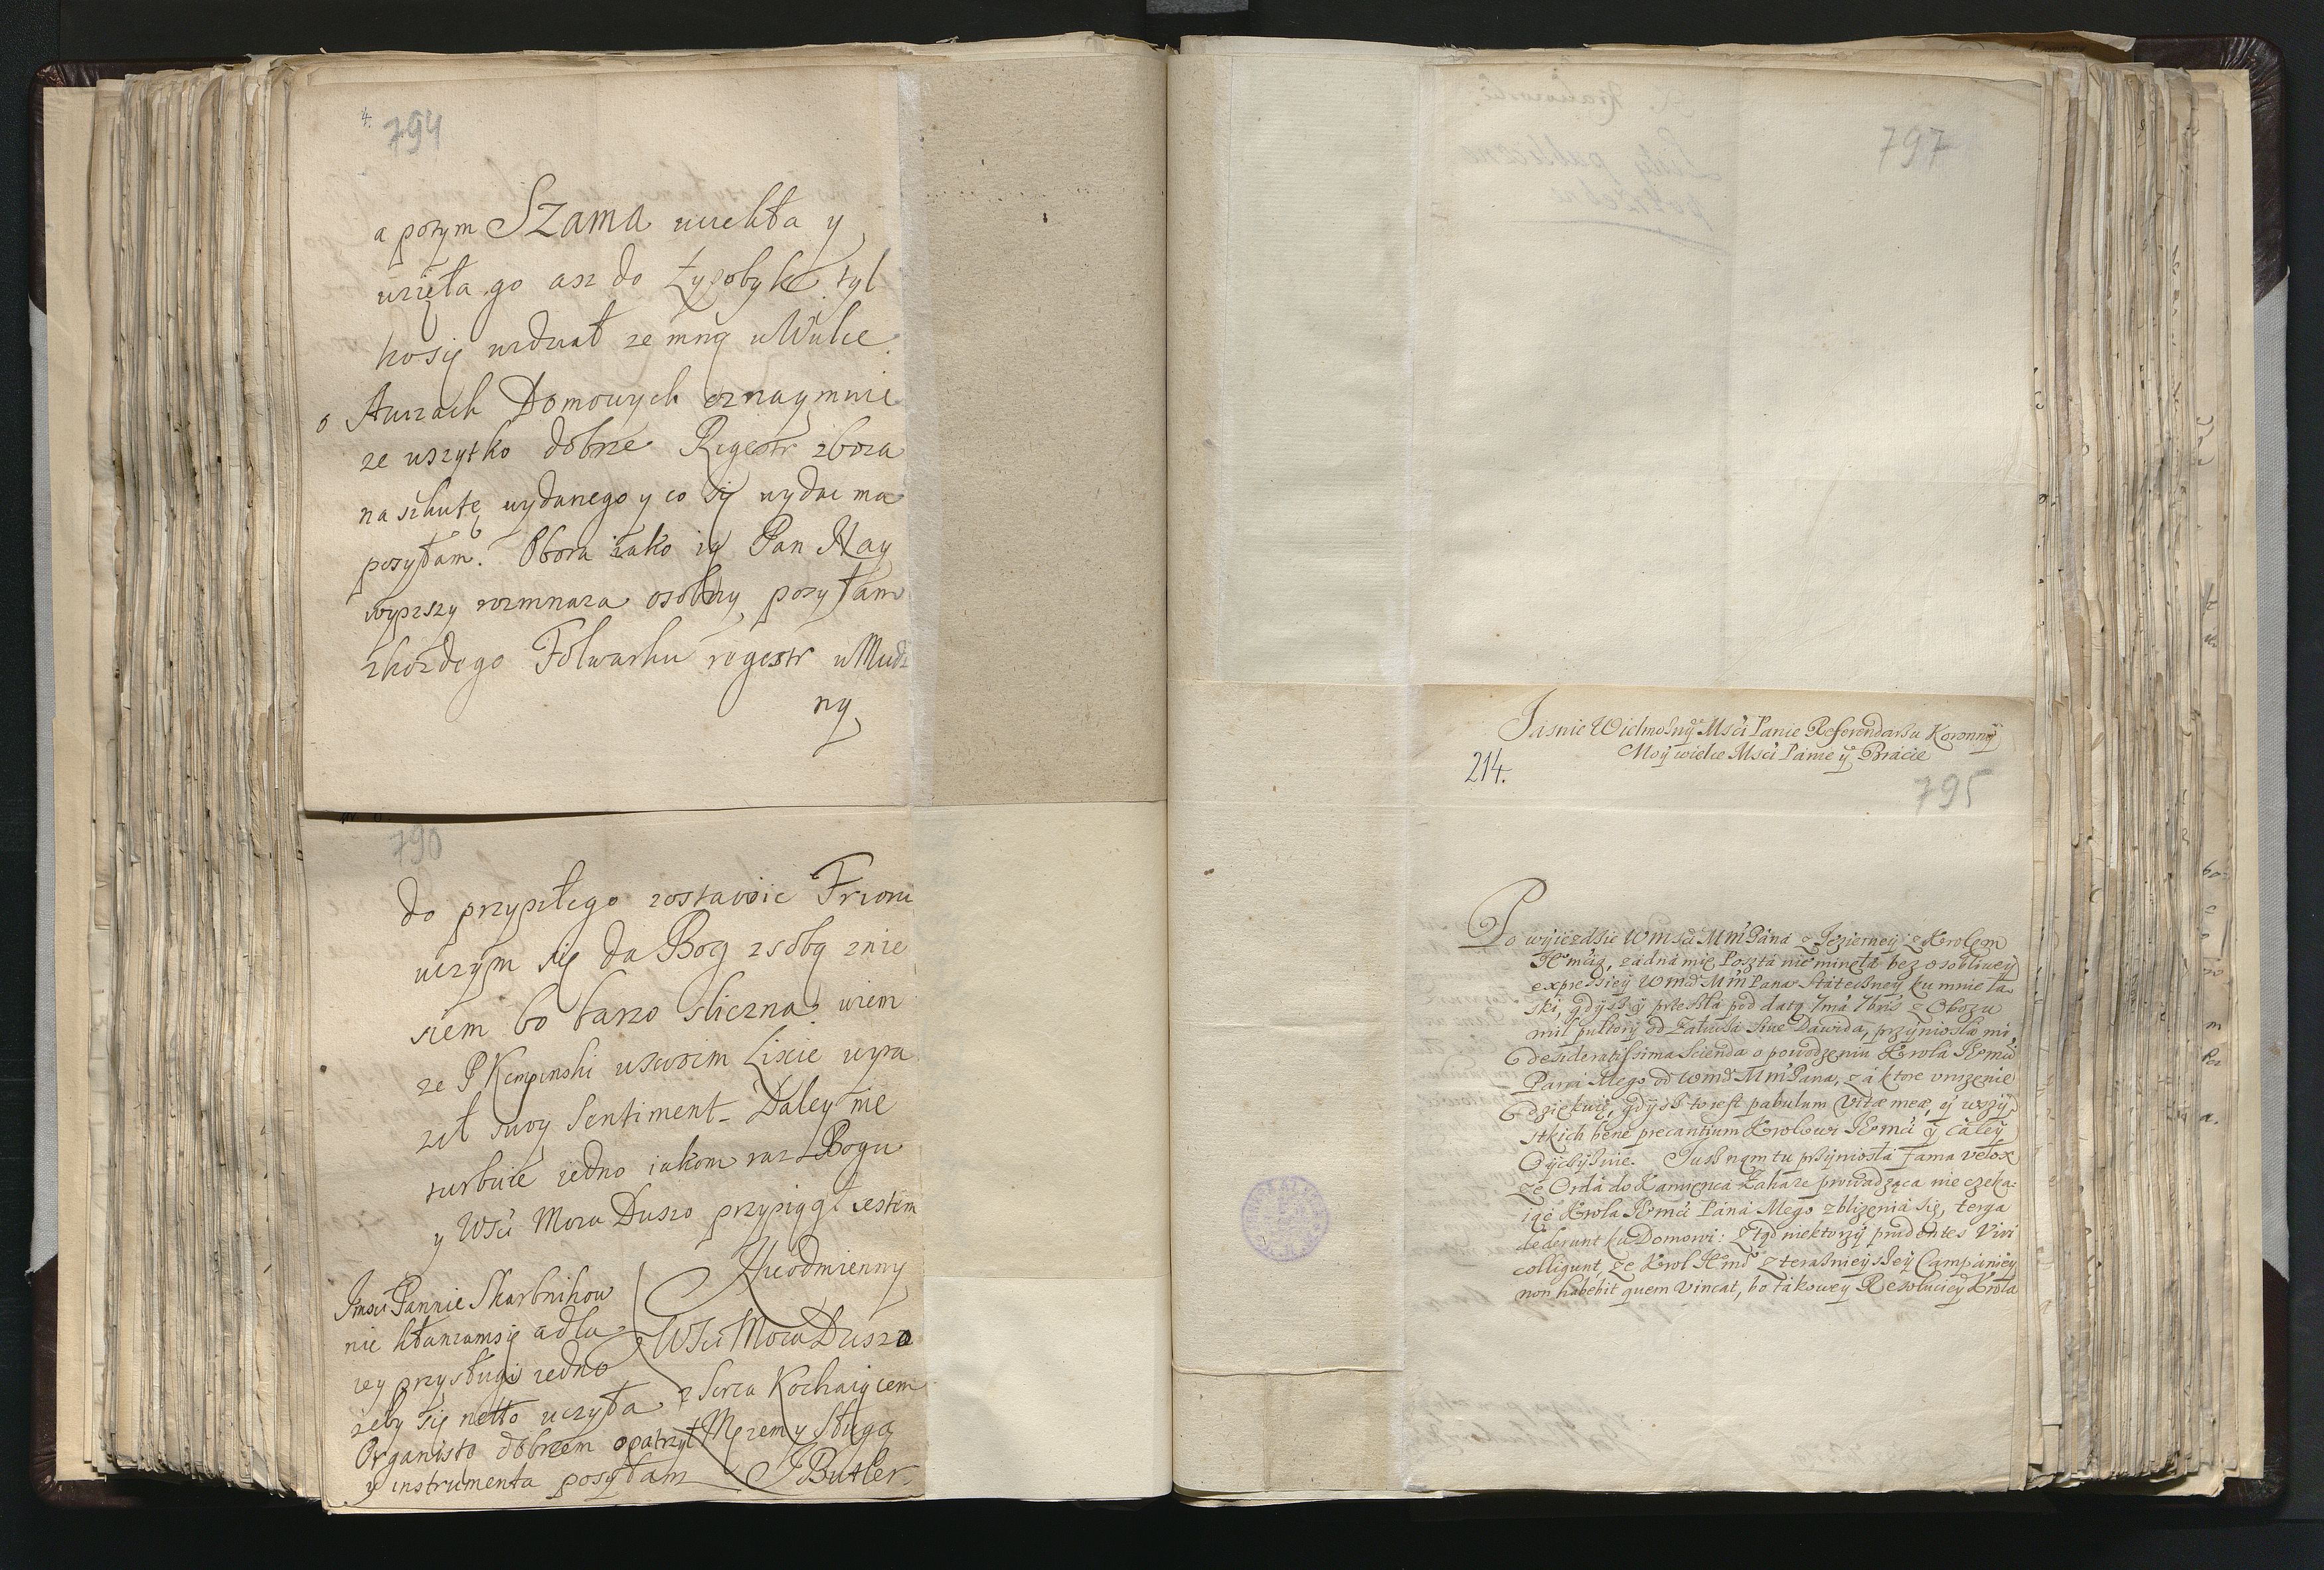 4.
794
a potym Szama uciekła y
wzięła go asz do Łysobyk tyl
ko się widział ze mną w Wulce
o Aurach Domowych oznaymuie
ze wszytko dobrze Regestr zboza
na szkutę wydanego y co się wydac ma
posyłam. Obora iako ią Pan Nay
wyszszy rozmnaza osobny posyłam
z kozdego Folwarku regestr
ny
790
do przyszłego zostawcie
uczym się da Bog z sobą znie
siem bo barzo sliczna wiem
ze P Kempinski w swoim Liscie wyra
ził swoy Sentiment. Daley nie
turbuie iedno iakom raz Bogu
y WSci Moia Duszo przysiągł iestem
Nieodmienny
WSci Moia Duszo
z Serca Kochaiącem
Męzem y Sługą
JButler
Imsci Pannie Skarbnikow
nie kłaniamsię a dla
iey przysługi iedno
zeby się netto uczyła
Organista dobrzem opatrzył
y instrumenta posyłam
797
Jasnie Wielmożnÿ Msći Panie Referendarżu Koronnÿ
Moÿ wielce Msći Panie ÿ Bracie
214.
795
Po wyiezdżie Wmsći MmPana z Jezierneÿ z Krolem
Jemćią, żadna mię Poszta nie minęła bez osobliweÿ
expressieÿ Wmći MmPana Státeżneÿ ku mnie ła
ski, gdÿsz ÿ przeszła pod datą 7ma 7bris z Obozu
mil pułtorÿ od Załuża siue Dawida, przÿniosła mi,
desideratissima scienda o powodzeniu Krola Jemći
Pana Mego od Wmći MmPana, zá ktore vniżenie
dziękuię, gdÿsz to iest pabulum vitæ meæ, ÿ wszÿ
stkich bene precantium Krolowi Jemći ÿ cáłeÿ
Oÿczÿżnie. Jusz nąm tu przÿniosła fama velox
że Orda do Kamieńca Zaharę prowadząca nie czeka
iąć Krola Jemći Pána Mego zbliżenia się, terga
dederunt ku Domowi: Ztąd niektorzÿ prudentes Viri
colligunt, że Krol Jemć z terażnieÿszeÿ Campánieÿ
non habebit quem vincat, bo takoweÿ Rezolucieÿ Krola